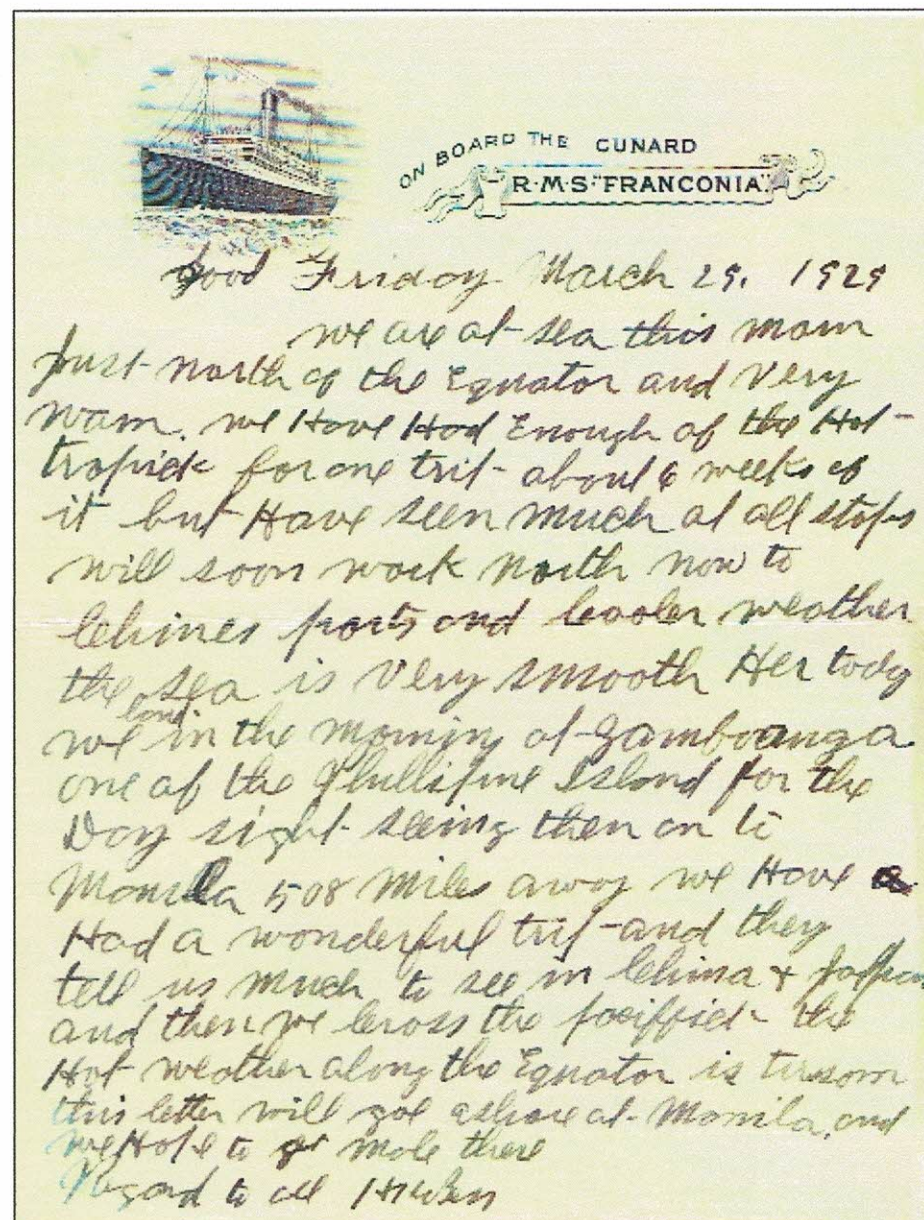 ON BOARD THE CUNARD
R·M·S·"FRANCONIA".
Good Friday March 29. 1929
we are at sea this morn
Just north of the Equator and Very
warm. we Have Had Enough of the Hot
tropick for one trip about 6 weeks of
it but Have seen much at all stops
will soon work North now to
Chines ports and Cooler weather
the sea is Very smooth Her today
we land in the morning at Zamboanga
one of the Phillipine Island for the
Day sight seeing then on to
Manila 508 Miles away we Have
Had a wonderful trip and they
tell us much to see in China + Jappan
and then we Cross the paciffick the
Hot weather along the Equator is tirsom
this letter will goe ashore at Manila. and
we Hope to get male there
Regard to all